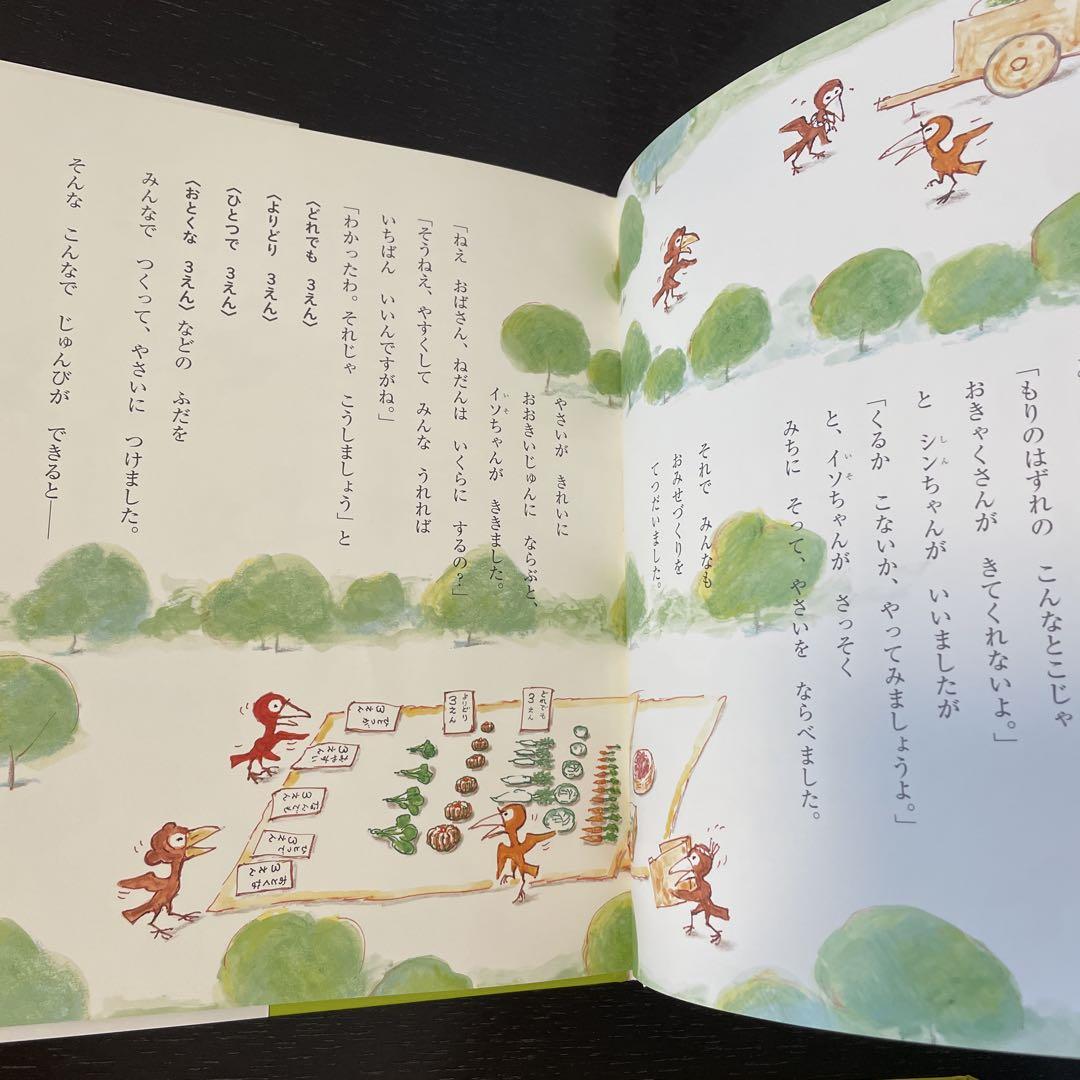 「もりのはずれの こんなとこじゃ
おきゃくさんが きてくれないよ。」
と シンちゃんが いいましたが
しん
「くるか こないか、やってみましょうよ。」
と、イソちゃんが さっそく
いそ
みちに そって、やさいを ならべました。
それで みんなも
おみせづくりを
てつだいました。
やさいが きれいに
おおきいじゅんに ならぶと、
イソちゃんが ききました。
いそ
「ねえ おばさん、ねだんは いくらに するの?」
「そうねえ、やすくして みんな うれれば
いちばん いいんですがね。」
「わかったわ。それじゃ こうしましょう」と
〈どれでも 3えん〉
〈よりどり 3えん〉
〈ひとつで 3えん〉
〈おとくな 3えん〉などの ふだを
みんなで つくって、やさいに つけました。
そんな こんなで じゅんびが できると――
どれでも
3えん
よりどり
3えん
3えん
3えん
なんでも
3えん
ひとつで
3えん
おとくな
3えん